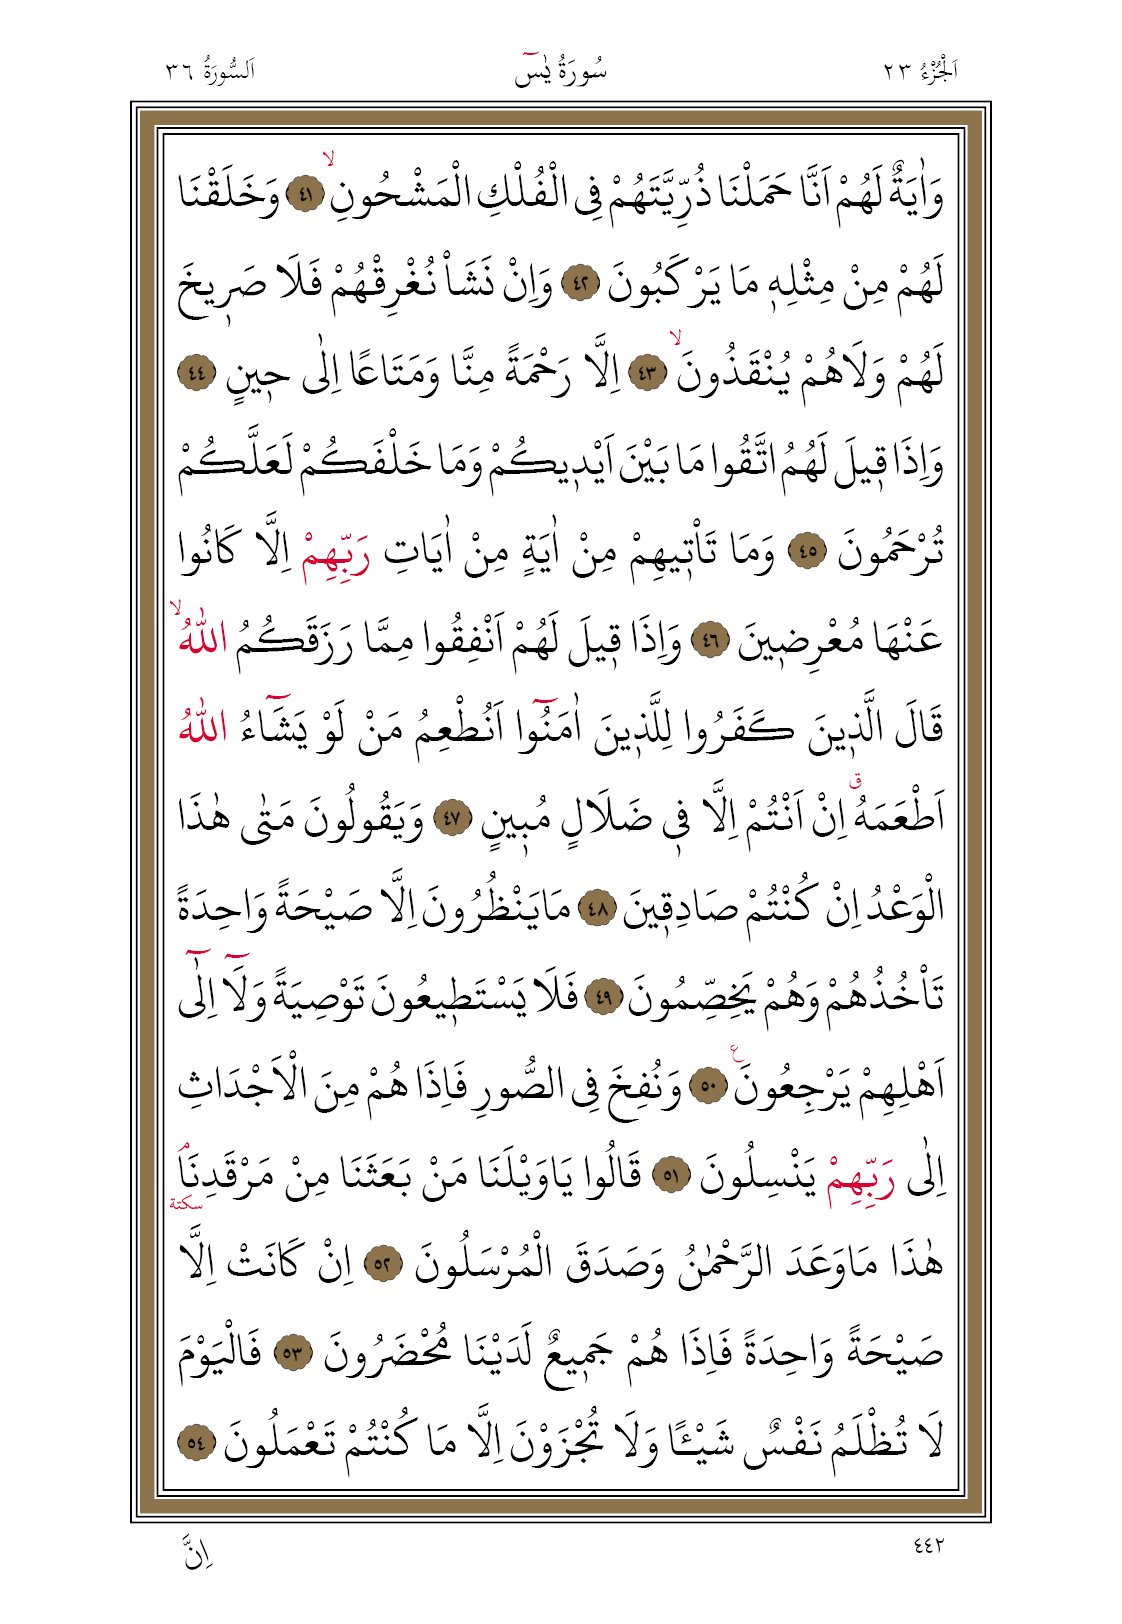 اَلْجُزْءُ ٢٣ سُورَةُ يٰسٓ اَلسُّورَةُ ٣٦
وَاٰيَةٌ لَهُمْ اَنَّا حَمَلْنَا ذُرِّيَّتَهُمْ فِى الْفُلْكِ الْمَشْحُونِۙ ٤١ وَخَلَقْنَا
لَهُمْ مِنْ مِثْلِه۪ مَا يَرْكَبُونَ ٤٢ وَاِنْ نَشَأْ نُغْرِقْهُمْ فَلَا صَر۪يخَ
لَهُمْ وَلَاهُمْ يُنْقَذُونَۙ ٤٣ اِلَّا رَحْمَةً مِنَّا وَمَتَاعًا اِلٰى ح۪ينٍ ٤٤
وَاِذَا ق۪يلَ لَهُمُ اتَّقُوا مَا بَيْنَ اَيْد۪يكُمْ وَمَا خَلْفَكُمْ لَعَلَّكُمْ
تُرْحَمُونَ ٤٥ وَمَا تَأْت۪يهِمْ مِنْ اٰيَةٍ مِنْ اٰيَاتِ رَبِّهِمْ اِلَّا كَانُوا
عَنْهَا مُعْرِض۪ينَ ٤٦ وَاِذَا ق۪يلَ لَهُمْ اَنْفِقُوا مِمَّا رَزَقَكُمُ اللّٰهُۙ
قَالَ الَّذ۪ينَ كَفَرُوا لِلَّذ۪ينَ اٰمَنُٓوا اَنُطْعِمُ مَنْ لَوْ يَشَٓاءُ اللّٰهُ
اَطْعَمَهُۗ اِنْ اَنْتُمْ اِلَّا ف۪ي ضَلَالٍ مُب۪ينٍ ٤٧ وَيَقُولُونَ مَتٰى هٰذَا
الْوَعْدُ اِنْ كُنْتُمْ صَادِق۪ينَ ٤٨ مَايَنْظُرُونَ اِلَّا صَيْحَةً وَاحِدَةً
تَأْخُذُهُمْ وَهُمْ يَخِصِّمُونَ ٤٩ فَلَا يَسْتَط۪يعُونَ تَوْصِيَةً وَلَٓا اِلٰٓى
اَهْلِهِمْ يَرْجِعُونَ۟ ٥٠ وَنُفِخَ فِى الصُّورِ فَاِذَا هُمْ مِنَ الْاَجْدَاثِ
اِلٰى رَبِّهِمْ يَنْسِلُونَ ٥١ قَالُوا يَاوَيْلَنَا مَنْ بَعَثَنَا مِنْ مَرْقَدِنَاۢ سكتة
هٰذَا مَاوَعَدَ الرَّحْمٰنُ وَصَدَقَ الْمُرْسَلُونَ ٥٢ اِنْ كَانَتْ اِلَّا
صَيْحَةً وَاحِدَةً فَاِذَا هُمْ جَم۪يعٌ لَدَيْنَا مُحْضَرُونَ ٥٣ فَالْيَوْمَ
لَا تُظْلَمُ نَفْسٌ شَيْـًٔا وَلَا تُجْزَوْنَ اِلَّا مَا كُنْتُمْ تَعْمَلُونَ ٥٤
٤٤٢ اِنَّ